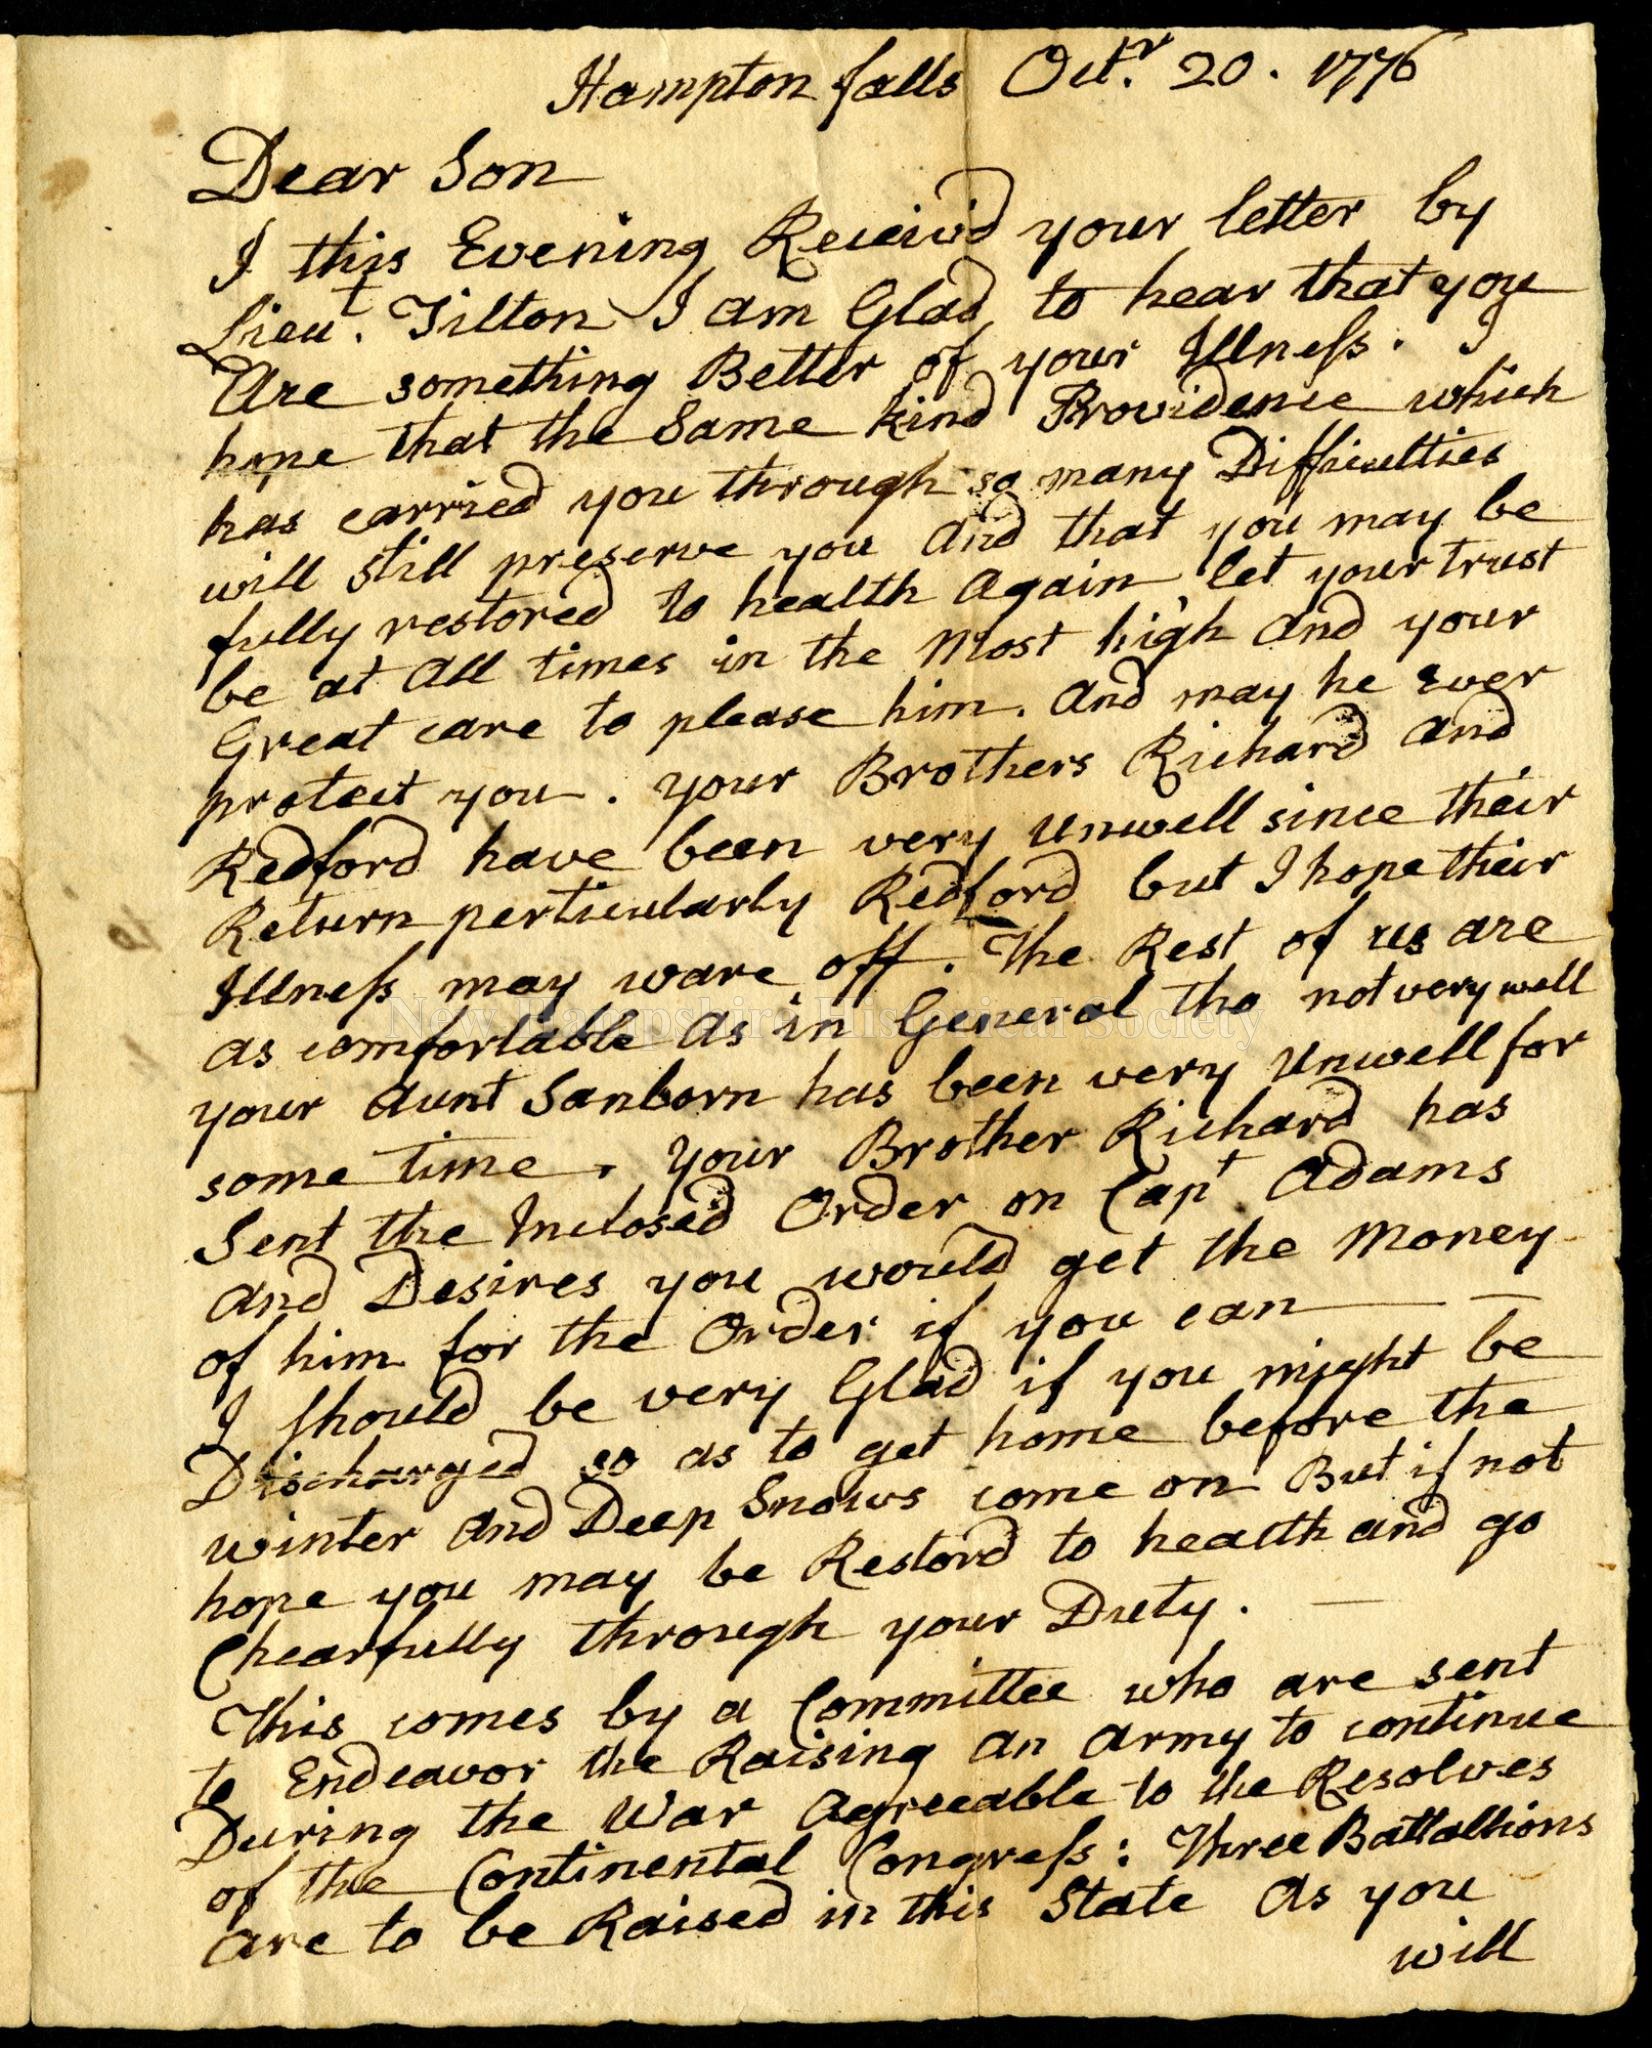 Hampton falls Oct.r 20. 1776
Dear Son
I this Evening Receiv'd your letter by
Lieut. Tilton I am Glad to hear that you
Are something Better of your Illness. I
hope that the Same kind Providence which
has carried you through so many Difficulties
will still preserve you And that you may be
fully restored to health Again let your trust
be at All times in the Most high And your
Great care to please him. And may he Ever
protect you. your Brothers Richard And
Redford have been very Unwell since their
Return perticularly Redford but I hope their
Illness may ware off. The Rest of us are
as comfortable As in General tho not very well
your Aunt Sanborn has been very Unwell for
some time. your Brother Richard has
Sent the Inclosed Order on Capt Adams
And Desires you would get the Money
of him for the Order if you can
I should be very Glad if you might be
Discharged so as to get home before the
winter And Deep Snows come on But if not
hope you may be Restord to health and go
Chearfully through your Duty.
This comes by a Committee who are sent
to Endeavor the Raising An Army to continue
During the War Agreeable to the Resolves
of the Continental Congress: Three Battallions
Are to be Raised in this State As you
will
New Hampshire Historical Society